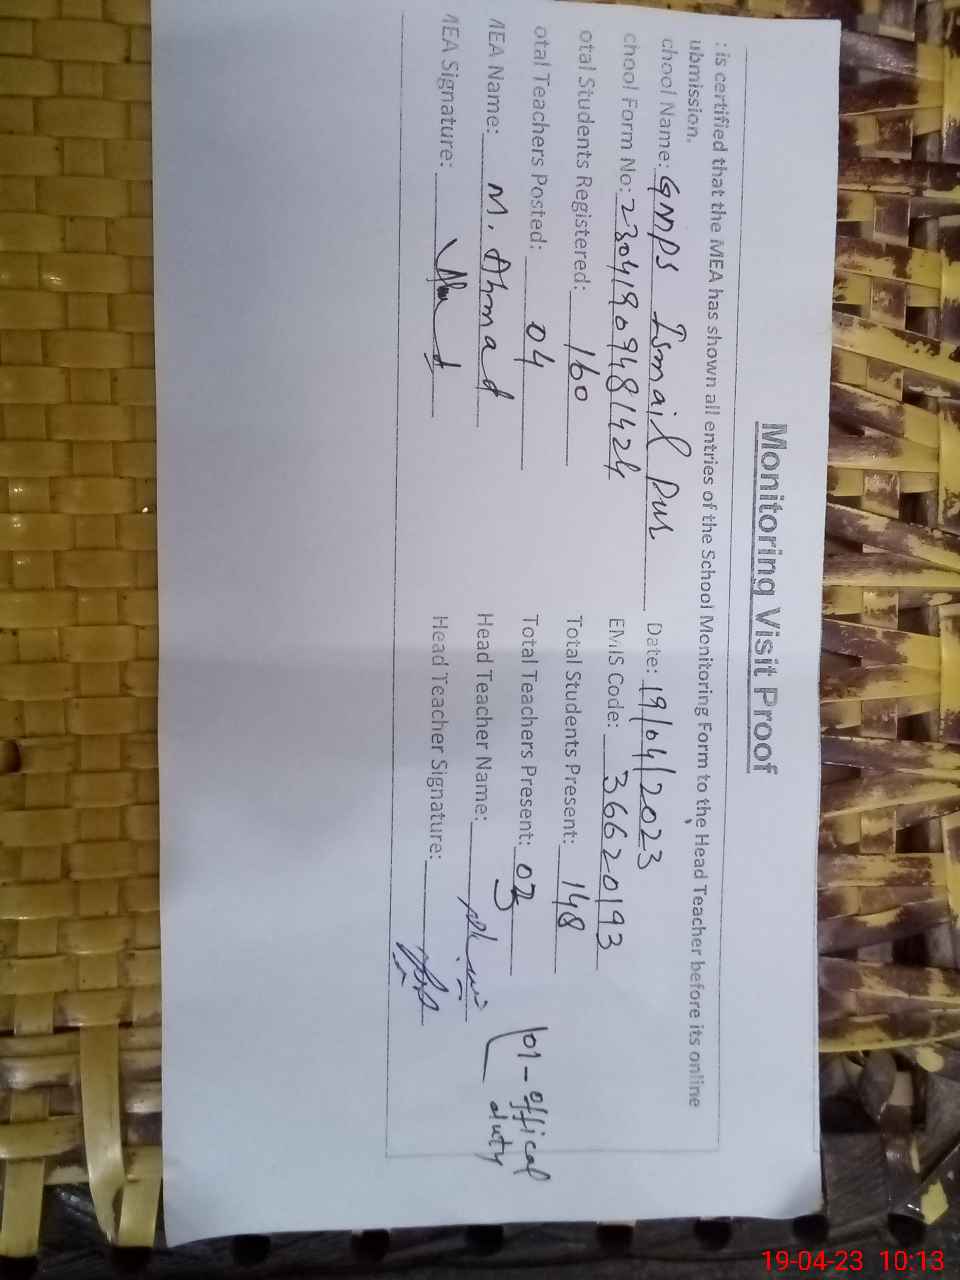 Monitoring Visit Proof
: is certified that the MEA has shown all entries of the School Monitoring Form to the Head Teacher before its online
ubmission.
chool Name: GMPS Ismail Pur Date: 19/04/2023
chool Form No: 23041909481424 EMIS Code: 36620193
otal Students Registered: 160 Total Students Present: 148
otal Teachers Posted: 04 Total Teachers Present: 03 01 - offical duty
MEA Name: M. Ahmad Head Teacher Name:
MEA Signature: Head Teacher Signature:
19-04-23 10:13